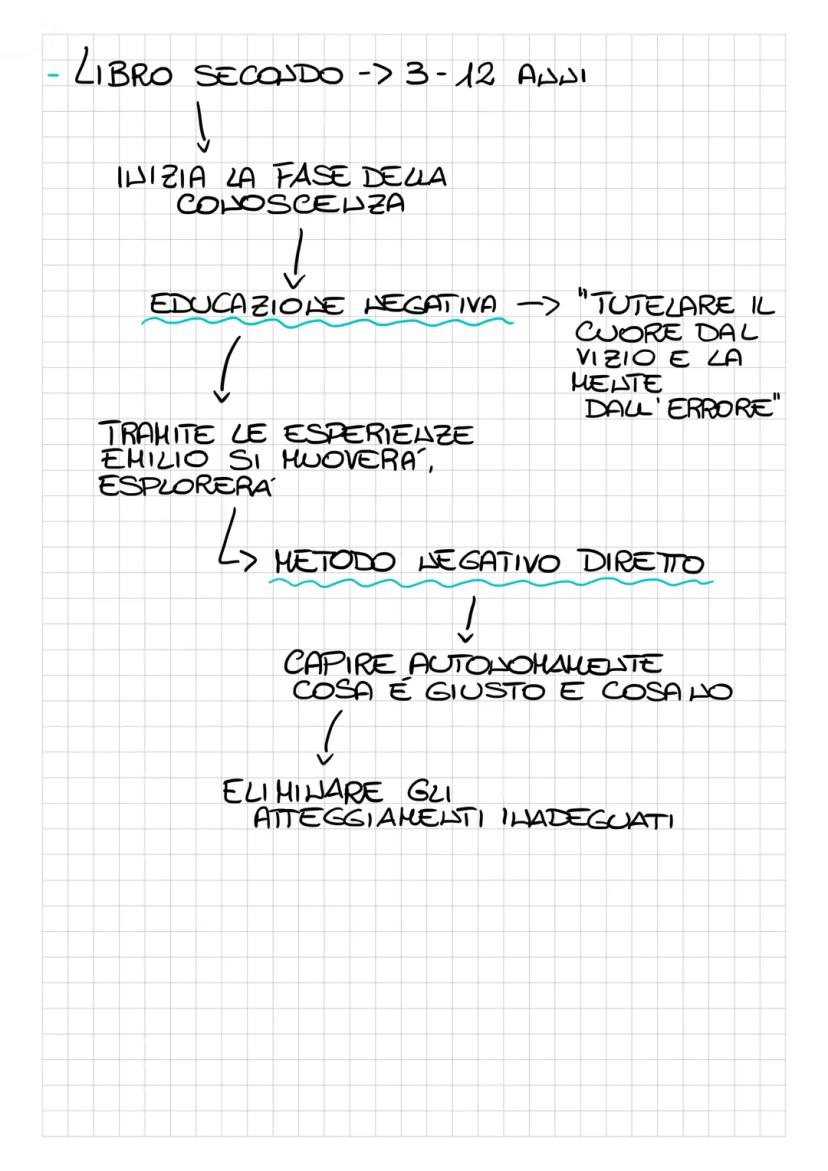 - LIBRO SECONDO -> 3-12 ANNI
INIZIA LA FASE DELLA
CONOSCENZA
EDUCAZIONE NEGATIVA -> "TUTELARE IL
CUORE DAL
VIZIO E LA
MENTE
DALL'ERRORE"
TRAMITE LE ESPERIENZE
EMILIO SI MUOVERA´,
ESPLORERA´
-> METODO NEGATIVO DIRETTO
CAPIRE AUTONOMAMENTE
COSA É GIUSTO E COSA NO
ELIMINARE GLI
ATTEGGIAMENTI INADEGUATI